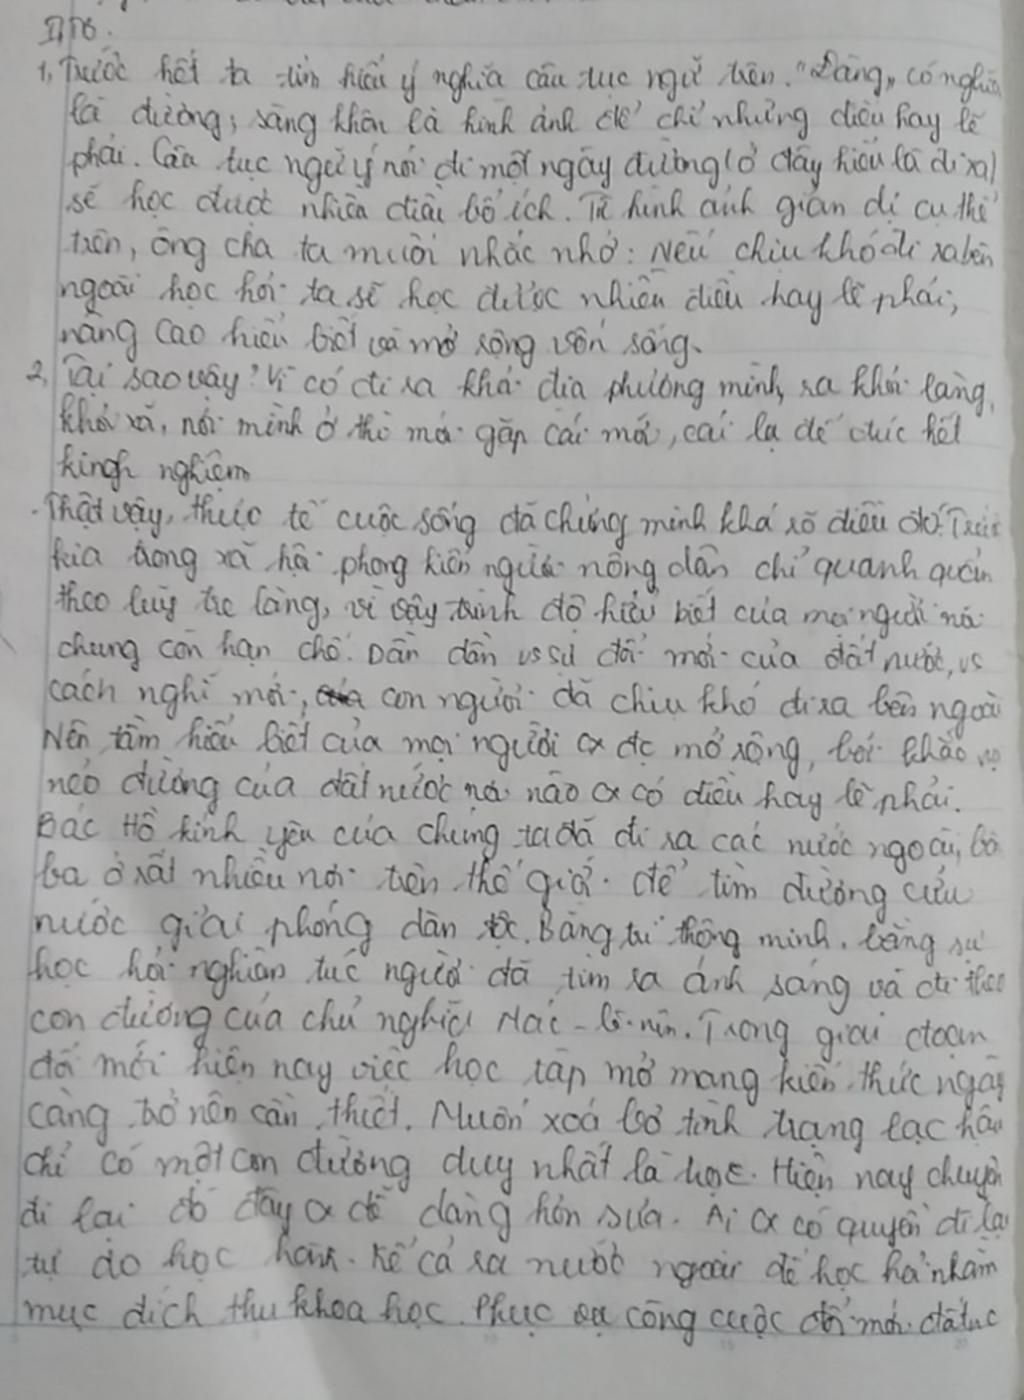 II, TB.
1, Trước hết ta tìm hiểu ý nghĩa câu tục ngữ trên. "Đàng" có nghĩa
là đường; sàng khôn là hình ảnh để chỉ những điều hay lẽ
phải. Câu tục ngữ ý nói đi một ngày đường (ở đây hiểu là đi xa)
sẽ học được nhiều điều bổ ích. Từ hình ảnh giản dị cụ thể
trên, ông cha ta muốn nhắc nhở: Nếu chịu khó đi ra bên
ngoài học hỏi ta sẽ học được nhiều điều hay lẽ phải,
nâng cao hiểu biết và mở rộng vốn sống.
2, Tại sao vậy? Vì có đi ra khỏi địa phương mình, ra khỏi làng,
khỏi xã, nơi mình ở thì mới gặp cái mới, cái lạ để đúc kết
kingh nghiệm
. Thật vậy, thực tế cuộc sống đã chứng minh khá rõ điều đó. Trước
kia trong xã hội phong kiến người nông dân chỉ quanh quẩn
theo luỹ tre làng, vì vậy trình độ hiểu biết của mọi người nói
chung còn hạn chế. Dần dần vs sự đổi mới của đất nước, vs
cách nghĩ mới, con người đã chịu khó đi ra bên ngoài
Nên tầm hiểu biết của mọi người cx đc mở rộng, bởi khắp
nẻo đường của đất nước nơi nào cx có điều hay lẽ phải.
Bác Hồ kính yêu của chúng ta đã đi ra các nước ngoài, bôn
ba ở rất nhiều nơi trên thế giới để tìm đường cứu
nước giải phóng dân tộc. Bằng trí thông minh, bằng sự
học hỏi nghiêm túc người đã tìm ra ánh sáng và đi theo
con đường của chủ nghĩa Mác-Lê-nin. Trong giai đoạn
đổi mới hiện nay việc học tập mở mang kiến thức ngày
càng trở nên cần thiết. Muốn xoá bỏ tình trạng lạc hậu
chỉ có một con đường duy nhất là học. Hiện nay chuyện
đi lại đó đây cx dễ dàng hơn xưa. Ai cx có quyền đi lại
tự do học hành. Kể cả ra nước ngoài để học hỏi nhằm
mục đích thu khoa học phục vụ công cuộc đổi mới đất nc